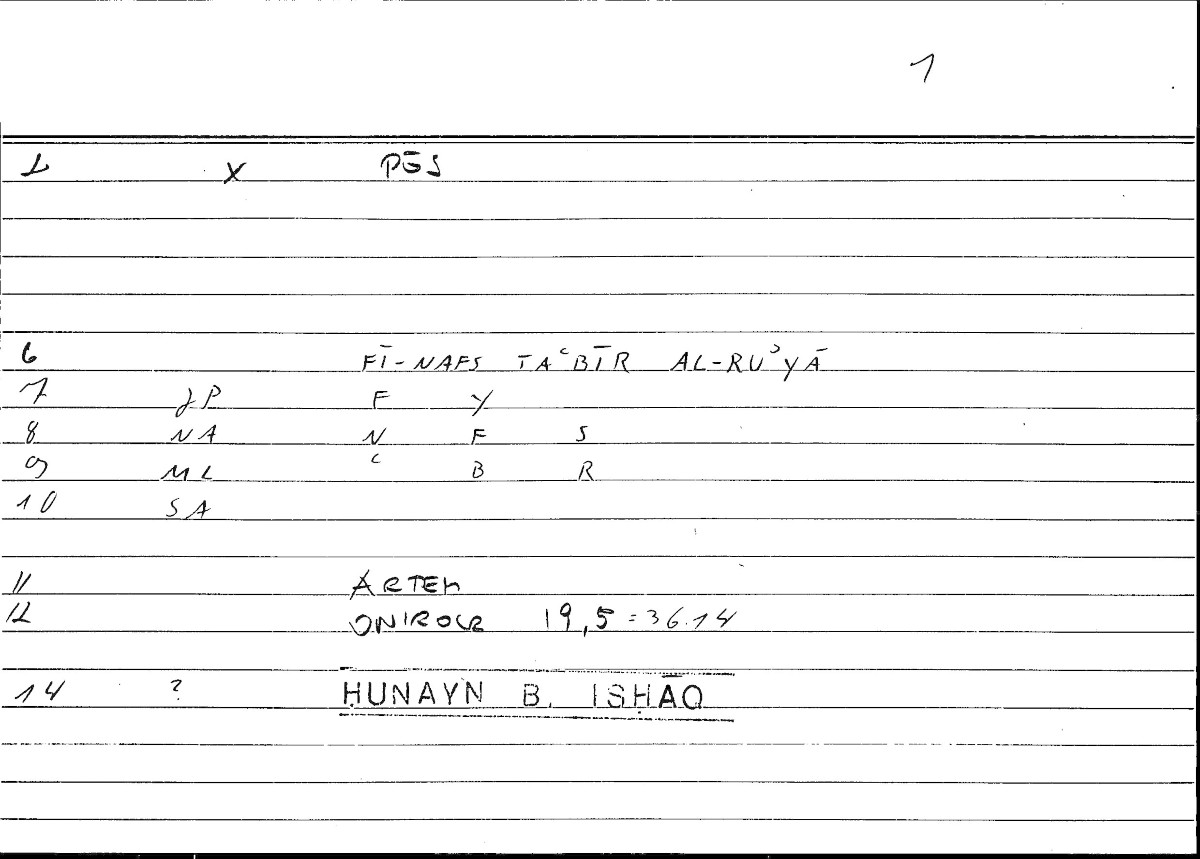 1
1 X PŌS
6 FĪ-NAFS TAʿBĪR AL-RUʾYĀ
7 JP F Y
8 NA N F S
9 ML ʿ B R
10 SA
11 ARTEM
12 ONIROCR 19,5 = 36.14
14 ? ḤUNAYN B. ISḤĀQ